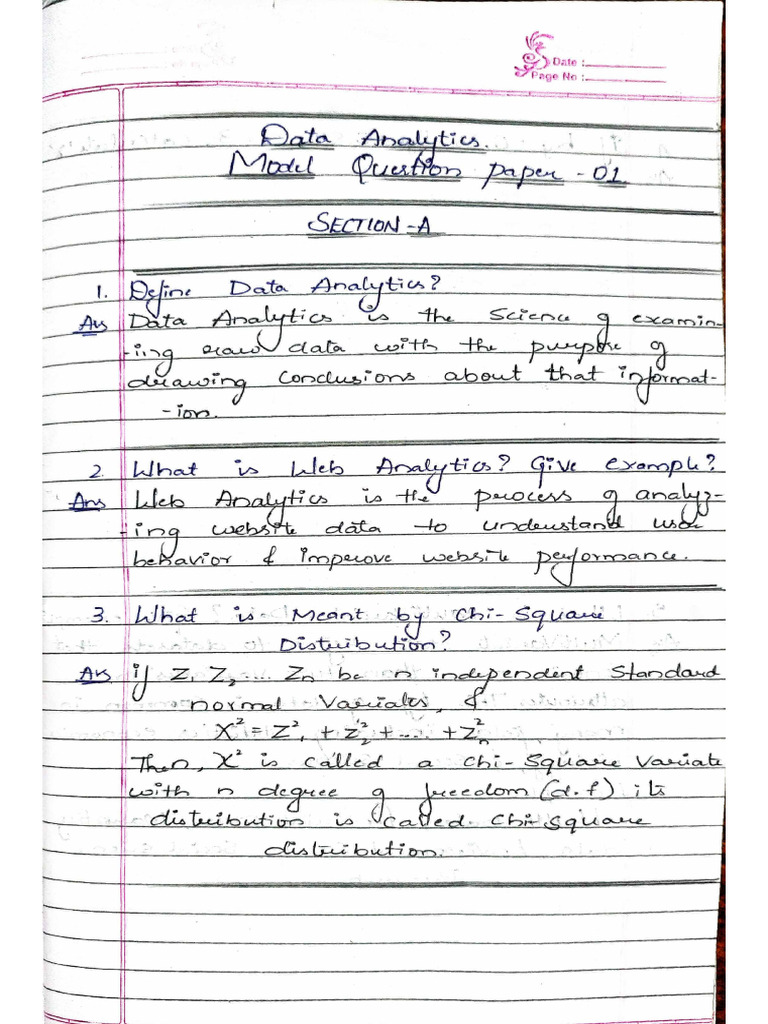 Date :
Page No :
Data Analytics.
Model Question paper - 01
SECTION-A
1. Define Data Analytics?
Ans Data Analytics is the Science of examin-
-ing raw data with the purpose of
drawing Conclusions about that informat-
-ion.
2. What is Web Analytics? Give example?
Ans Web Analytics is the process of analyz-
-ing website data to understand user
behavior & improve website performance.
3. What is Meant by Chi-Square
Distribution?
Ans if Z₁ Z₂ .... Zn be n independent Standard
normal Variates, &
X² = Z²₁ + Z²₂ + .... + Z²n
Then, X² is called a Chi-Square Variate
with n degree of freedom (d.f) its
distribution is called Chi-Square
distribution.